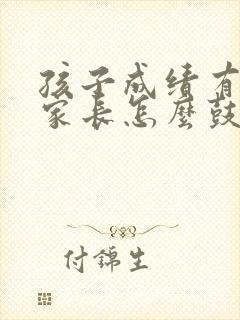 孩子成绩有
家长怎麼鼓
付錦生